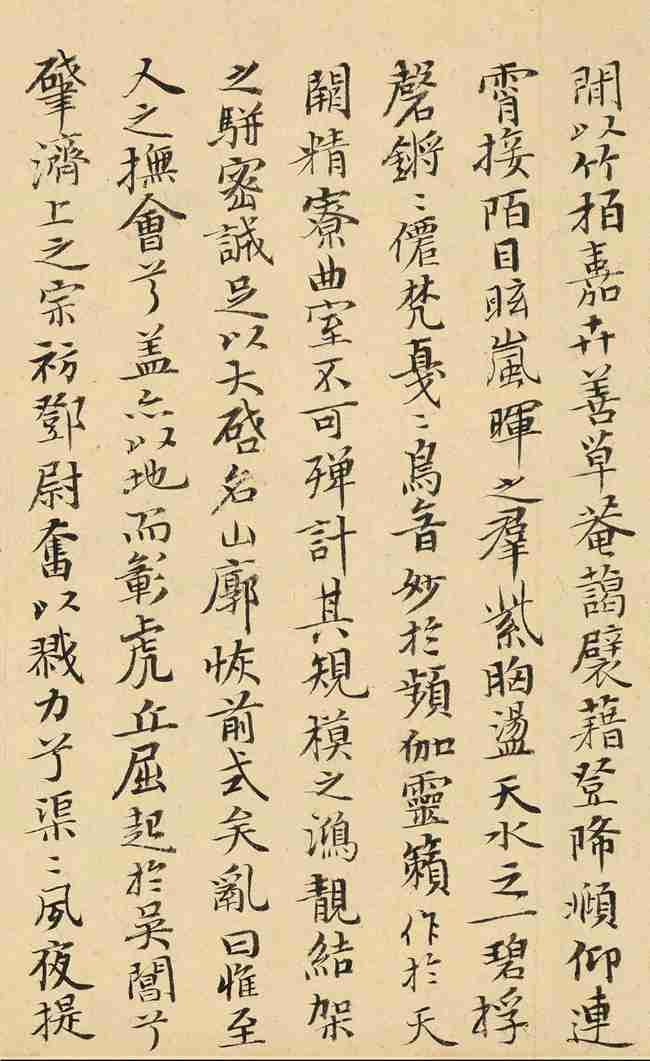 閒以竹栢嘉卉善草菴藹襞藉登降順仰連
霄接陌目眩嵐暉之羣紫胸盪天水之一碧桴
磬鏘〻僊梵戛〻鳥音妙於頻伽靈籟作於天
關精寮曲室不可殫計其規模之鴻靚結架
之駢密誠足以大啓名山廓恢前式矣亂曰惟至
人之撫會兮盖亦以地而彰虎丘屈起於吳閶兮
肇濟上之宗祊鄧尉奮以戮力兮渠〻夙夜提